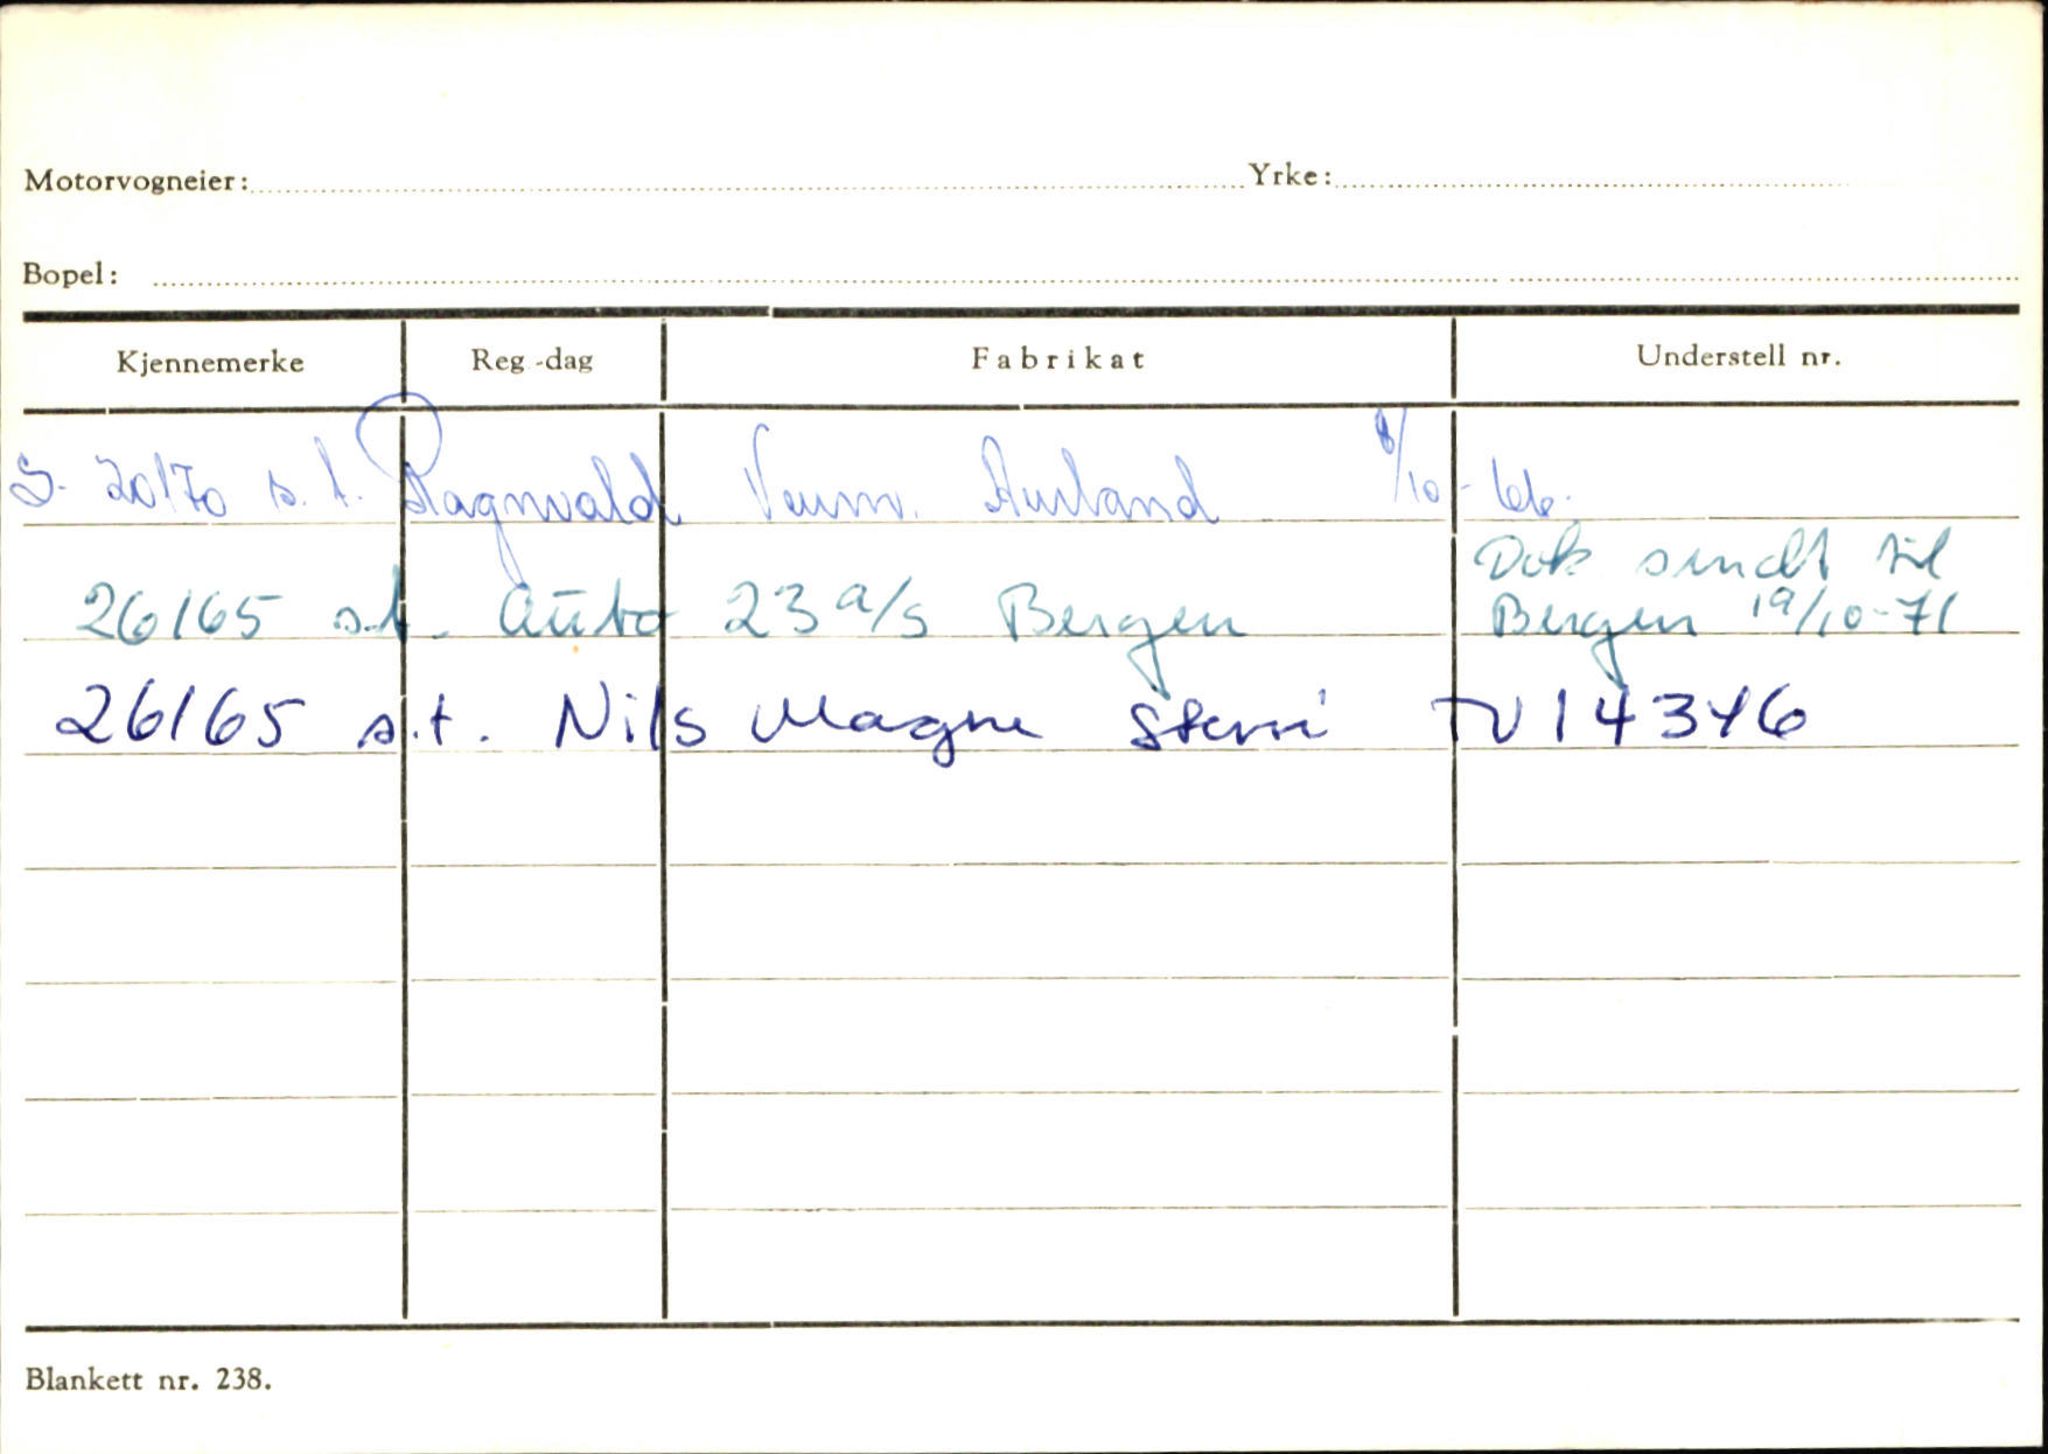 Motorvogneier: Yrke:
Bopel:
Kjennemerke Reg.-dag Fabrikat Understell nr.
S- 20170 s.t. Ragnvald Aurland /10 - 66.
Dok sendt til
26165 s.t. Auto 23 a/s Bergen Bergen 19/10-71
26165 s.t. Nils Magne
Blankett nr. 238.